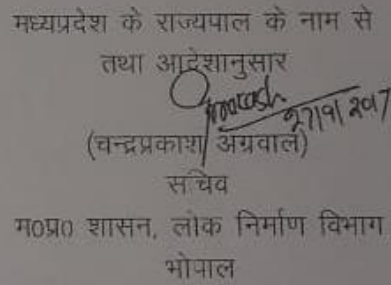 मध्यप्रदेश के राज्यपाल के नाम से
तथा आदेशानुसार
27/9/2017
(चन्द्रप्रकाश अग्रवाल)
सचिव
म0प्र0 शासन, लोक निर्माण विभाग
भोपाल